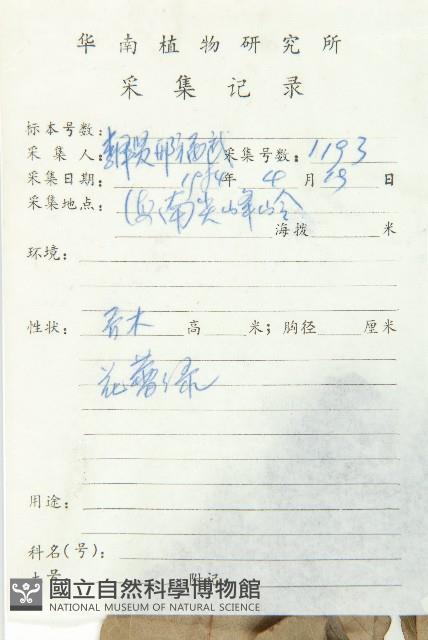 华南植物研究所
采集记录
标本号数：
采集人： 邢福武 采集号数：1193
采集日期： 1984年 4 月 19 日
采集地点： 海南尖峰岭
海拨 米
环境：
性状： 乔木 高 米；胸径 厘米
花蕾绿
用途：
科名(号)：
土名 附记
國立自然科學博物館
NATIONAL MUSEUM OF NATURAL SCIENCE